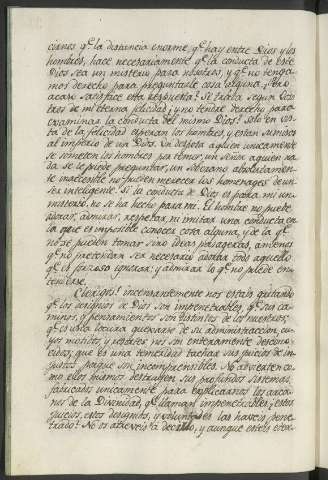 ciones q.e la distancia enorme, q.e hay entre Dios y los
hombres, hace necesariamente q.e la conducta de este
Dios sea un misterio para nosotros, y q.e no tenga-
mos derecho para preguntarle cosa alguna. Pero
acaso satisface esta respuesta? Se trata segun voso-
tros de mi eterna felicidad, y no tendré derecho para
examinar la conducta del mismo Dios? Solo en vis-
ta de la felicidad esperan los hombres, y estan sumisos
al imperio de un Dios. Un despota á quien unicamente
se someten los hombres por temor, un Señor á quien na-
da se le puede preguntar, un Soberano absolutamen-
te inaccesible no pueden merecer los homenages de un
ser inteligente. Si la conducta de Dios es para mi un
misterio, no se ha hecho para mi. El hombre ni puede
adorar, admirar, respetar ni imitar una conducta en
la que es imposible conocer cosa alguna, y de la q.e
no se pueden formar sino ideas pasageras, amenos
q.e no pretendan ser necesario adorar todo aquello
q.e es forzoso ignorar; y admirar lo q.e no puede en-
tenderse.
Clerigos! incesantemente nos estais gritando
q.e los designios de Dios son impenetrables, q.e sus ca-
minos, y pensamientos son distintos de los nuestros;
q.e es una locura quexarse de su administracion, cu-
yos motivos y resortes nos son enteramente descono-
cidos; que es una temeridad tachar sus juicios de in-
justos porque son incomprensibles. No advierten co-
mo ellos mismos destruyen sus profundos sistemas,
fabricados unicamente para explicarnos los arca-
nos de la Divinidad, q.e llaman impenetrables; estos
juicios, estos designios, y voluntades las haveis pene-
trado? No os atreveis á decirlo, y aunque esteis